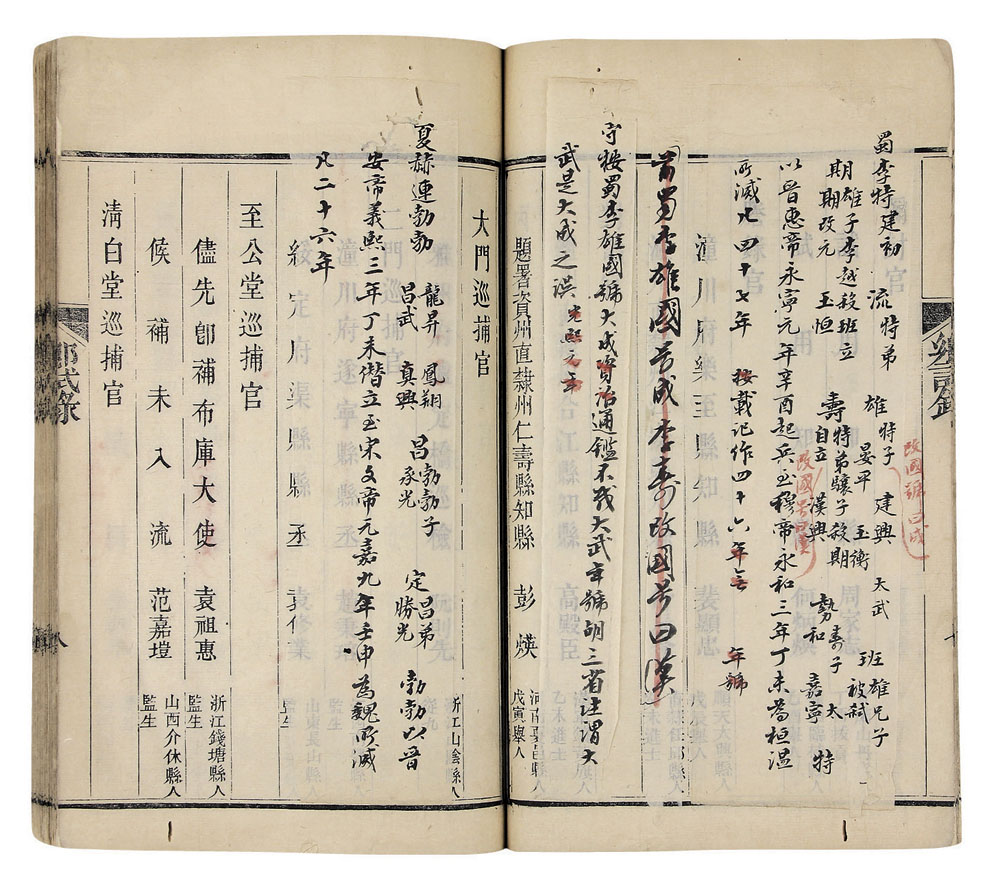 蜀李特建初 流特弟 雄特子 建興 太武 班雄兄子
晏平 玉衡 被弑
期雄子李越殺班立 壽特弟驤子殺期 勢壽子 太
期改元 玉恒 自立 漢興 和 嘉寧 特
改國號曰成
改國号曰漢
以晉惠帝永寧元年辛酉起兵至穆帝永和三年丁未為桓溫
所滅凡四十七年 按載記作四十六年 年號
潼川府樂至縣知縣
晉蜀李雄國号成李壽改國号曰漢
守按蜀李雄國號大成資治通鑑不載大武年號胡三省注謂大
武是大成之誤
題署資州直隸州仁壽縣知縣 彭煐 河南夏邑縣人
戊寅舉人
大門巡捕官
浙江山陰縣人
夏赫連勃勃 龍昇 鳳翔 昌勃勃子 定昌弟 勃勃以晉
昌武 真興 承光 勝光
安帝義熙三年丁未僭立至宋文帝元嘉九年壬申為魏所滅
凡二十六年
綏定府渠縣縣丞
監生
至公堂巡捕官
儘先即補布庫大使 袁祖惠 浙江錢塘縣人
監生
候補未入流 范嘉塏 山西介休縣人
監生
清白堂巡捕官
武錄